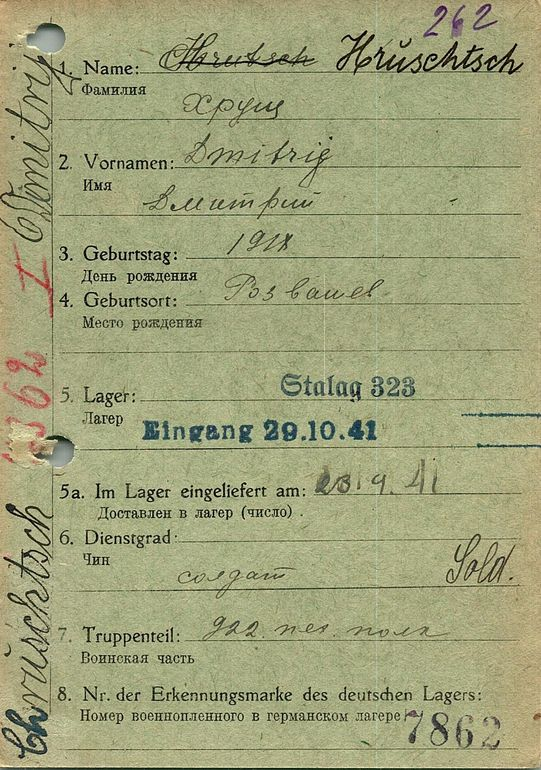 262
1. Name: Hrutsch Hrŭschtsch
Фамилия
Хрущ
2. Vornamen: Dmitrig
Имя
Дмитрий
3. Geburtstag: 1918
День рождения
4. Geburtsort: Розвашев
Место рождения
5. Lager: Stalag 323
Лагер
Eingang 29.10.41
5a. Im Lager eingeliefert am: 23.9.41
Доставлен в лагер (число)
6. Dienstgrad:
Чин
солдат Sold.
7. Truppenteil: 922. пех. полк
Воинская часть
8. Nr. der Erkennungsmarke des deutschen Lagers:
Номер военнопленного в германском лагере
7862
Chrŭschtsch
I Dimitrij